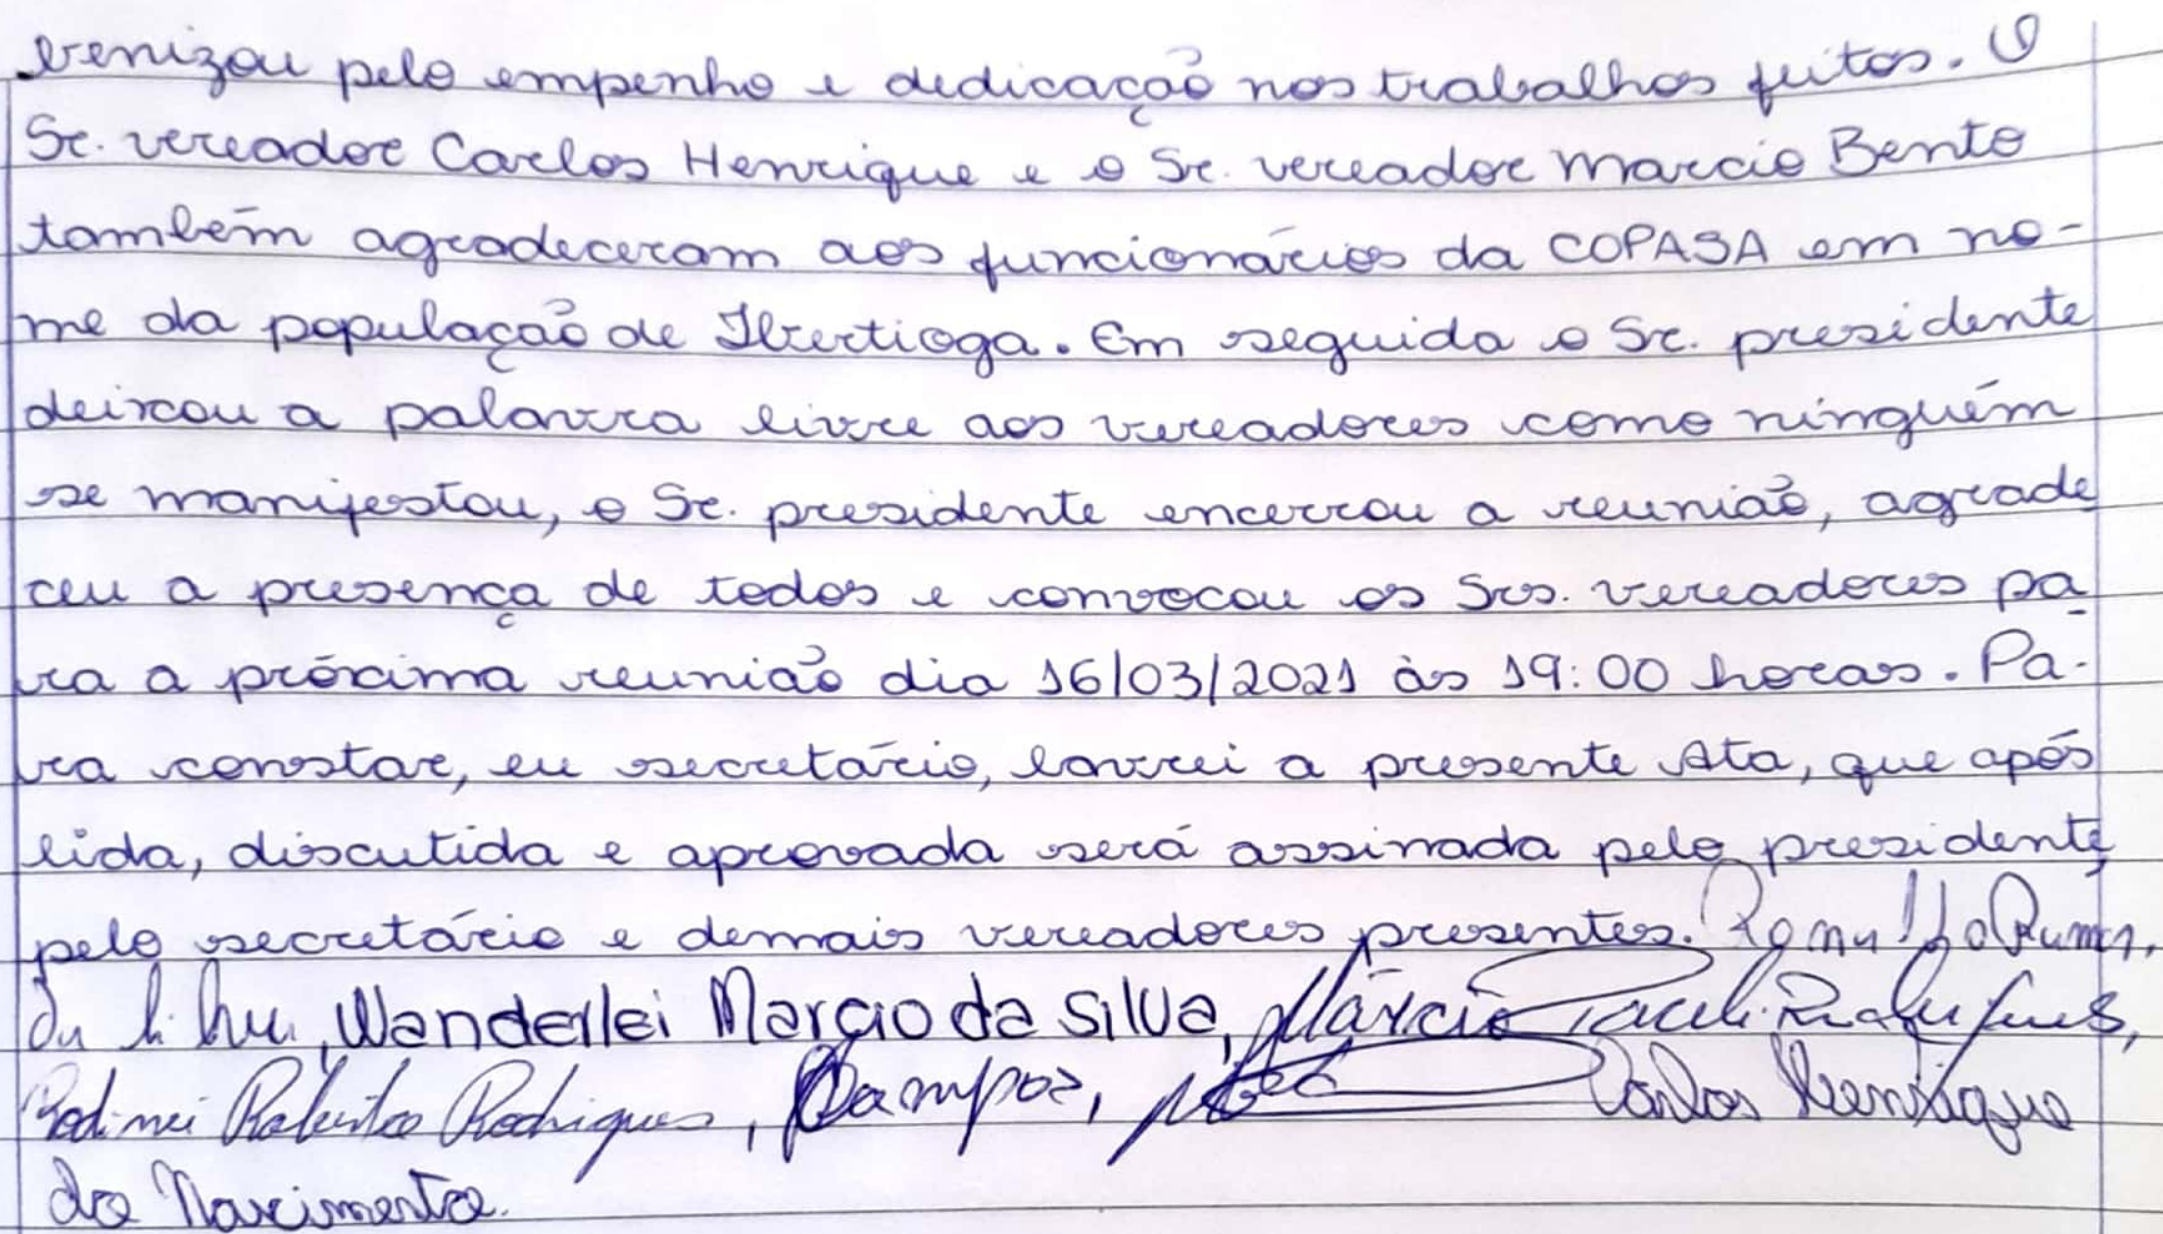 benizou pelo empenho e dedicação nos trabalhos feitos. O
Sr. vereador Carlos Henrique e o Sr. vereador Marcio Bento
também agradeceram aos funcionários da COPASA em no-
me da população de Ibertioga. Em seguida o Sr. presidente
deixou a palavra livre aos vereadores como ninguém
se manifestou, o Sr. presidente encerrou a reunião, agrade
ceu a presença de todos e convocou os Srs. vereadores pa
ra a próxima reunião dia 16/03/2021 às 19:00 horas. Pa-
ra constar, eu secretário, lavrei a presente Ata, que após
lida, discutida e aprovada será assinada pelo presidente,
pelo secretário e demais vereadores presentes.
Wanderlei Marcio da Silva, Márcio
Rodrigues, Campos, Carlos Henrique
do Nascimento.